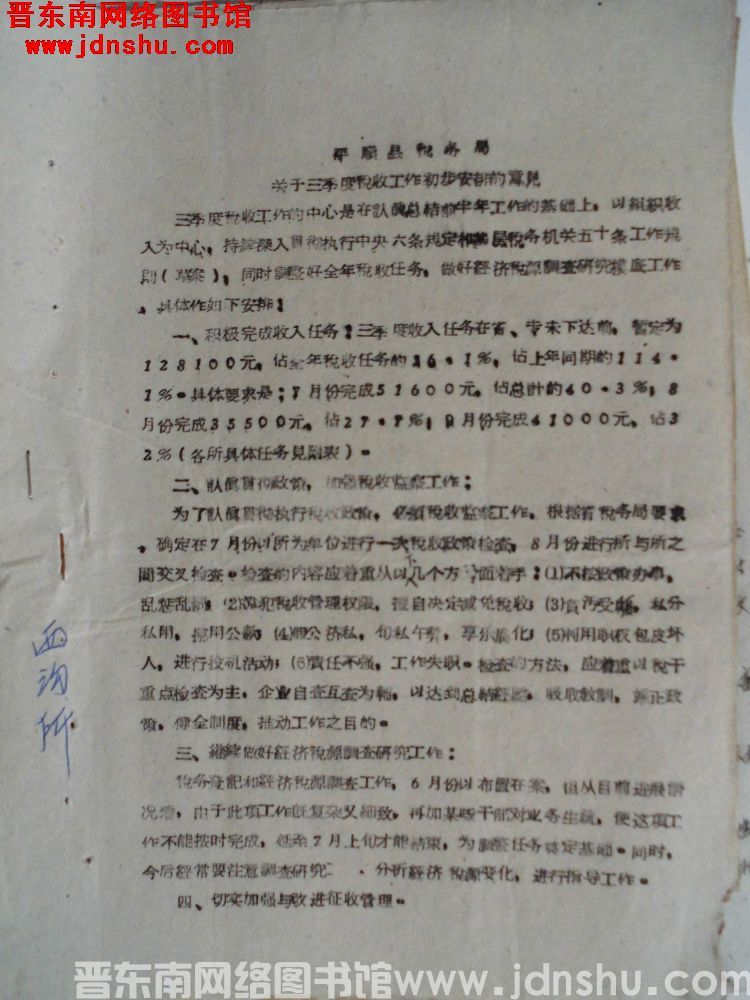 晋东南网络图书馆
www.jdnshu.com
平顺县税务局
关于三季度税收工作初步安排的意見
三季度税收工作的中心是在認眞总結前半年工作的基础上，以組织收
入为中心，持續深入貫彻执行中央六条規定和基层税务机关五十条工作規
則（草案），同时調整好全年税收任务，做好經济税源調查研究摸底工作
，具体作如下安排：
一、积极完成收入任务：三季度收入任务在省、专未下达前，暂定为
128100元，佔全年税收任务的26.1%，佔上年同期的114.
1%。具体要求是：7月份完成51600元，佔总計的40.3%；8
月份完成35500元，佔27.7%；9月份完成41000元，佔3
2%（各所具体任务見附表）。
二、認眞貫彻政策，加强税收监察工作：
为了認眞貫彻执行税收政策，必須税收监察工作，根据省税务局要求
，确定在7月份以所为单位进行一次税收政策检查，8月份进行所与所之
間交叉检查。检查的内容应着重从以下几个方面着手：(1)不按政策办事，
乱惩乱罰；(2)违犯税收管理权限，擅自决定减免税收；(3)貪汚受賄，私分
私用，挪用公款；(4)假公济私，徇私午弊，享乐腐化；(5)利用职权包庇坏
人，进行投机活动；(6)責任不强，工作失职。检查的方法，应着重以税干
重点检查为主，企业自查互查为輔，以达到总結經驗，吸取教訓，算正政
策，健全制度，推动工作之目的。
三、継续做好經济税源調查研究工作：
税务登記和經济税源調查工作，6月份以布置在案，但从目前进展情
况看，由于此項工作既复杂又細致，再加某些干部对业务生疏，使这項工
作不能按时完成，延至7月上旬才能結束，为調整任务奠定基础。同时，
今后經常要注意調查研究、分析經济税源变化，进行指导工作。
四、切实加强与改进征收管理。
西沟所
晋东南网络图书馆www.jdnshu.com